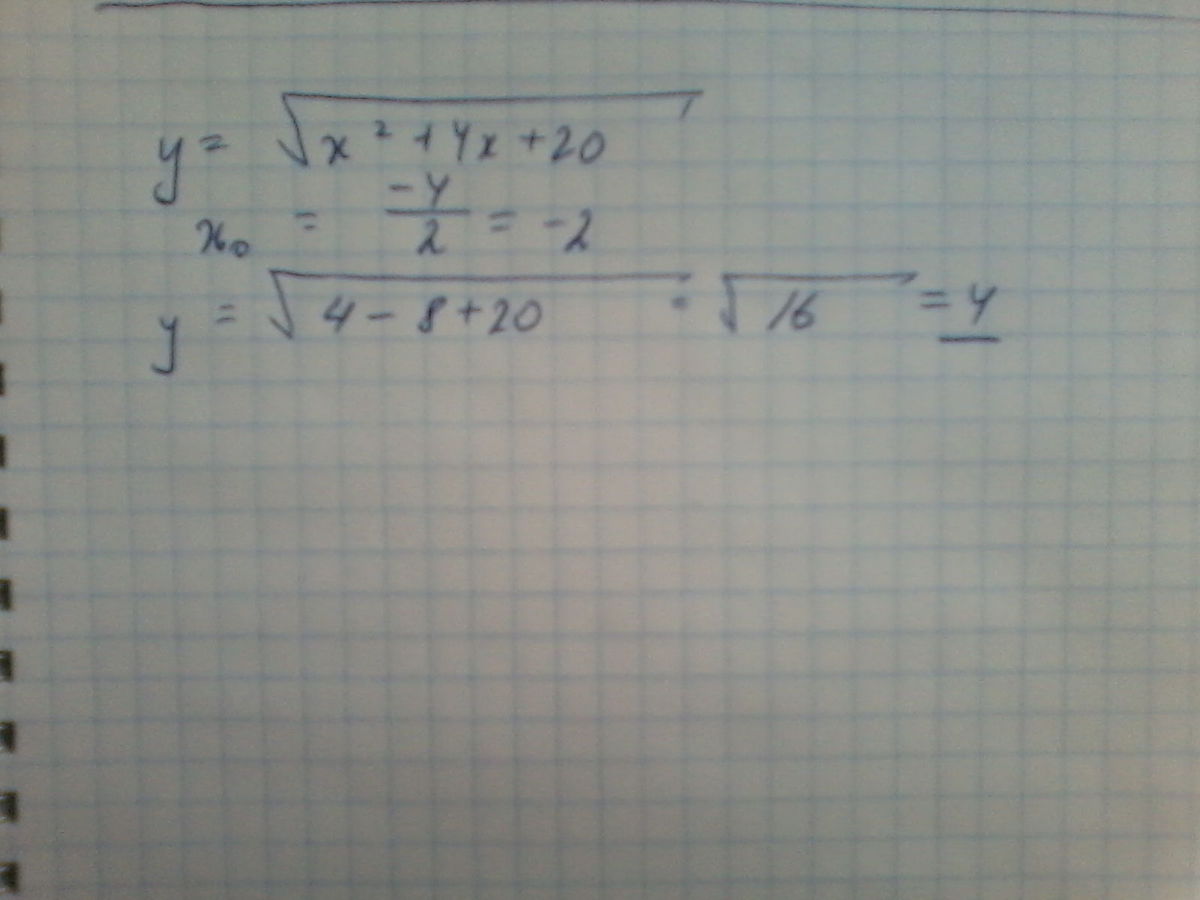 y = √(x² + 4x + 20)
x₀ = -4/2 = -2
y = √(4 - 8 + 20) = √16 = 4